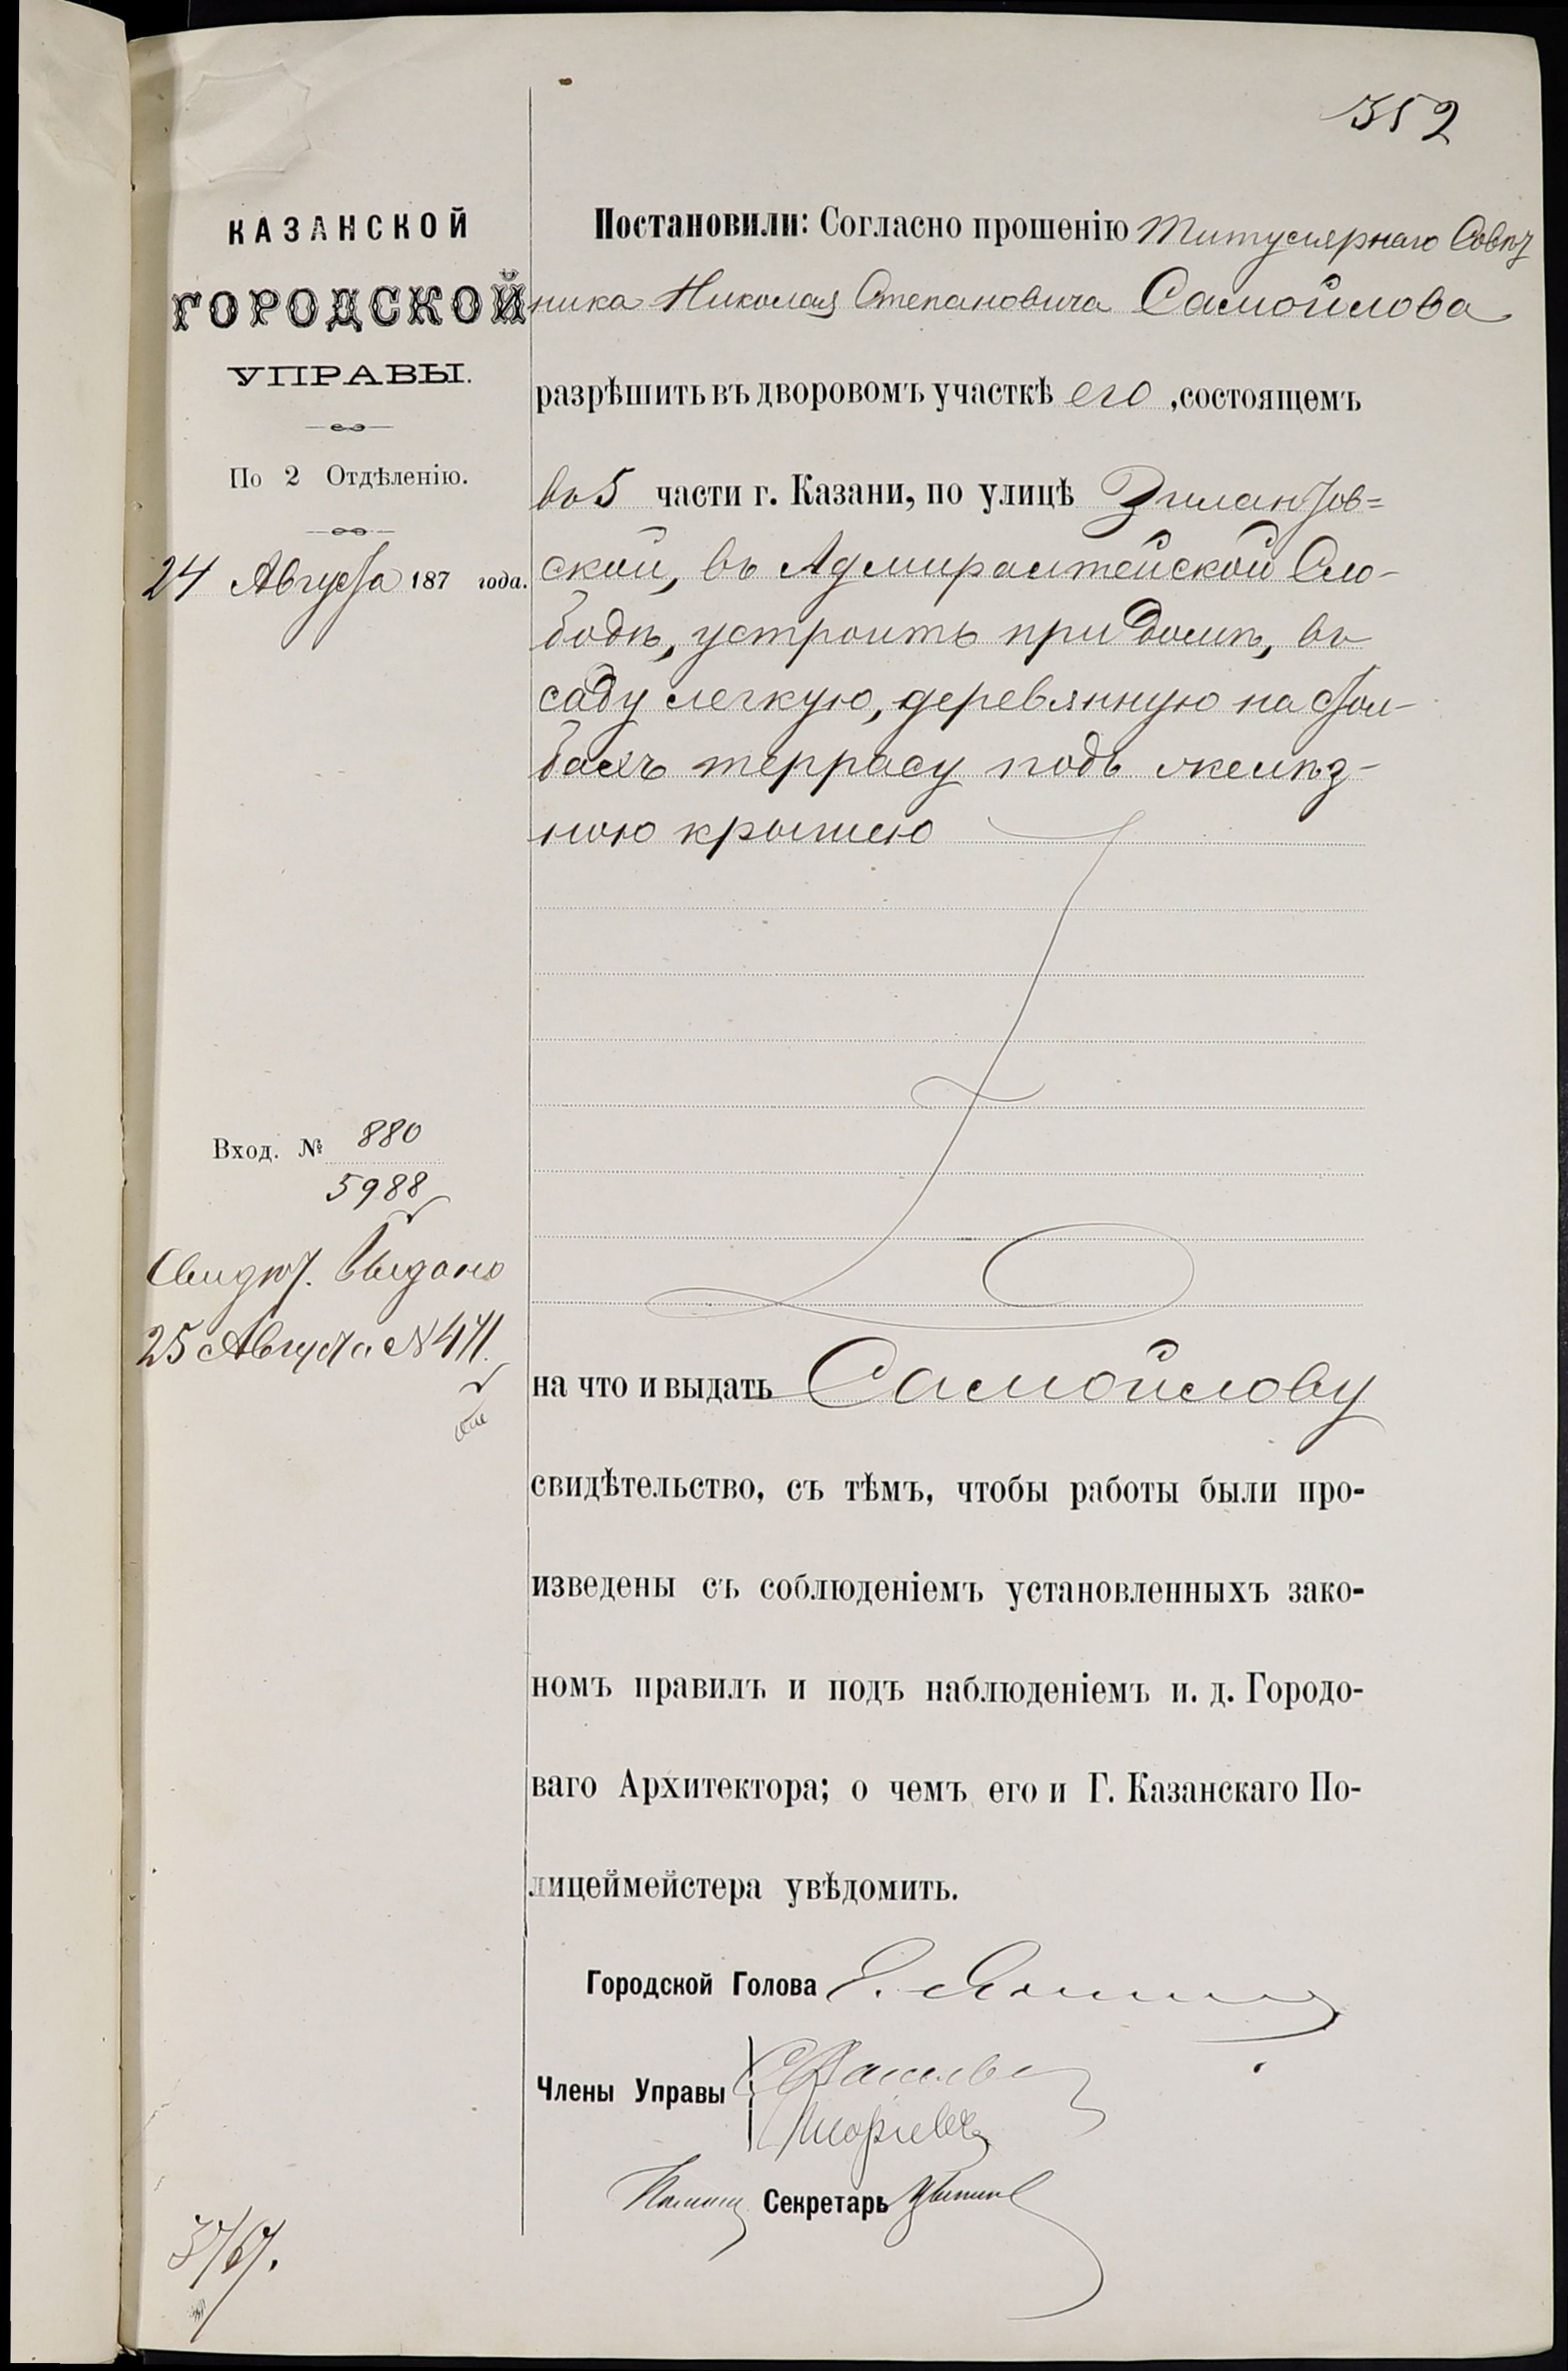 352
КАЗАНСКОЙ
ГОРОДСКОЙ
УПРАВЫ.
По 2 Отдѣленію.
24 Августа 187 года.
Вход. № 880
5988
Свидѣт. выдано
25 Августа № 471.
Постановили: Согласно прошенію Титулярнаго Совѣт
ника Николая Степановича Самойлова
разрѣшить въ дворовомъ участкѣ его, состоящемъ
въ 5 части г. Казани, по улицѣ Зилантов=
ской, въ Адмиралтейской Сло-
бодѣ, устроить при домѣ, въ
саду легкую, деревянную на стол-
бахъ террасу подъ желѣз-
ною крышею
на что и выдать Самойлову
свидѣтельство, съ тѣмъ, чтобы работы были про-
изведены съ соблюденіемъ установленныхъ зако-
номъ правилъ и подъ наблюденіемъ и. д. Городо-
ваго Архитектора; о чемъ его и Г. Казанскаго По-
лицеймейстера увѣдомить.
Городской Голова
Члены Управы
Секретарь